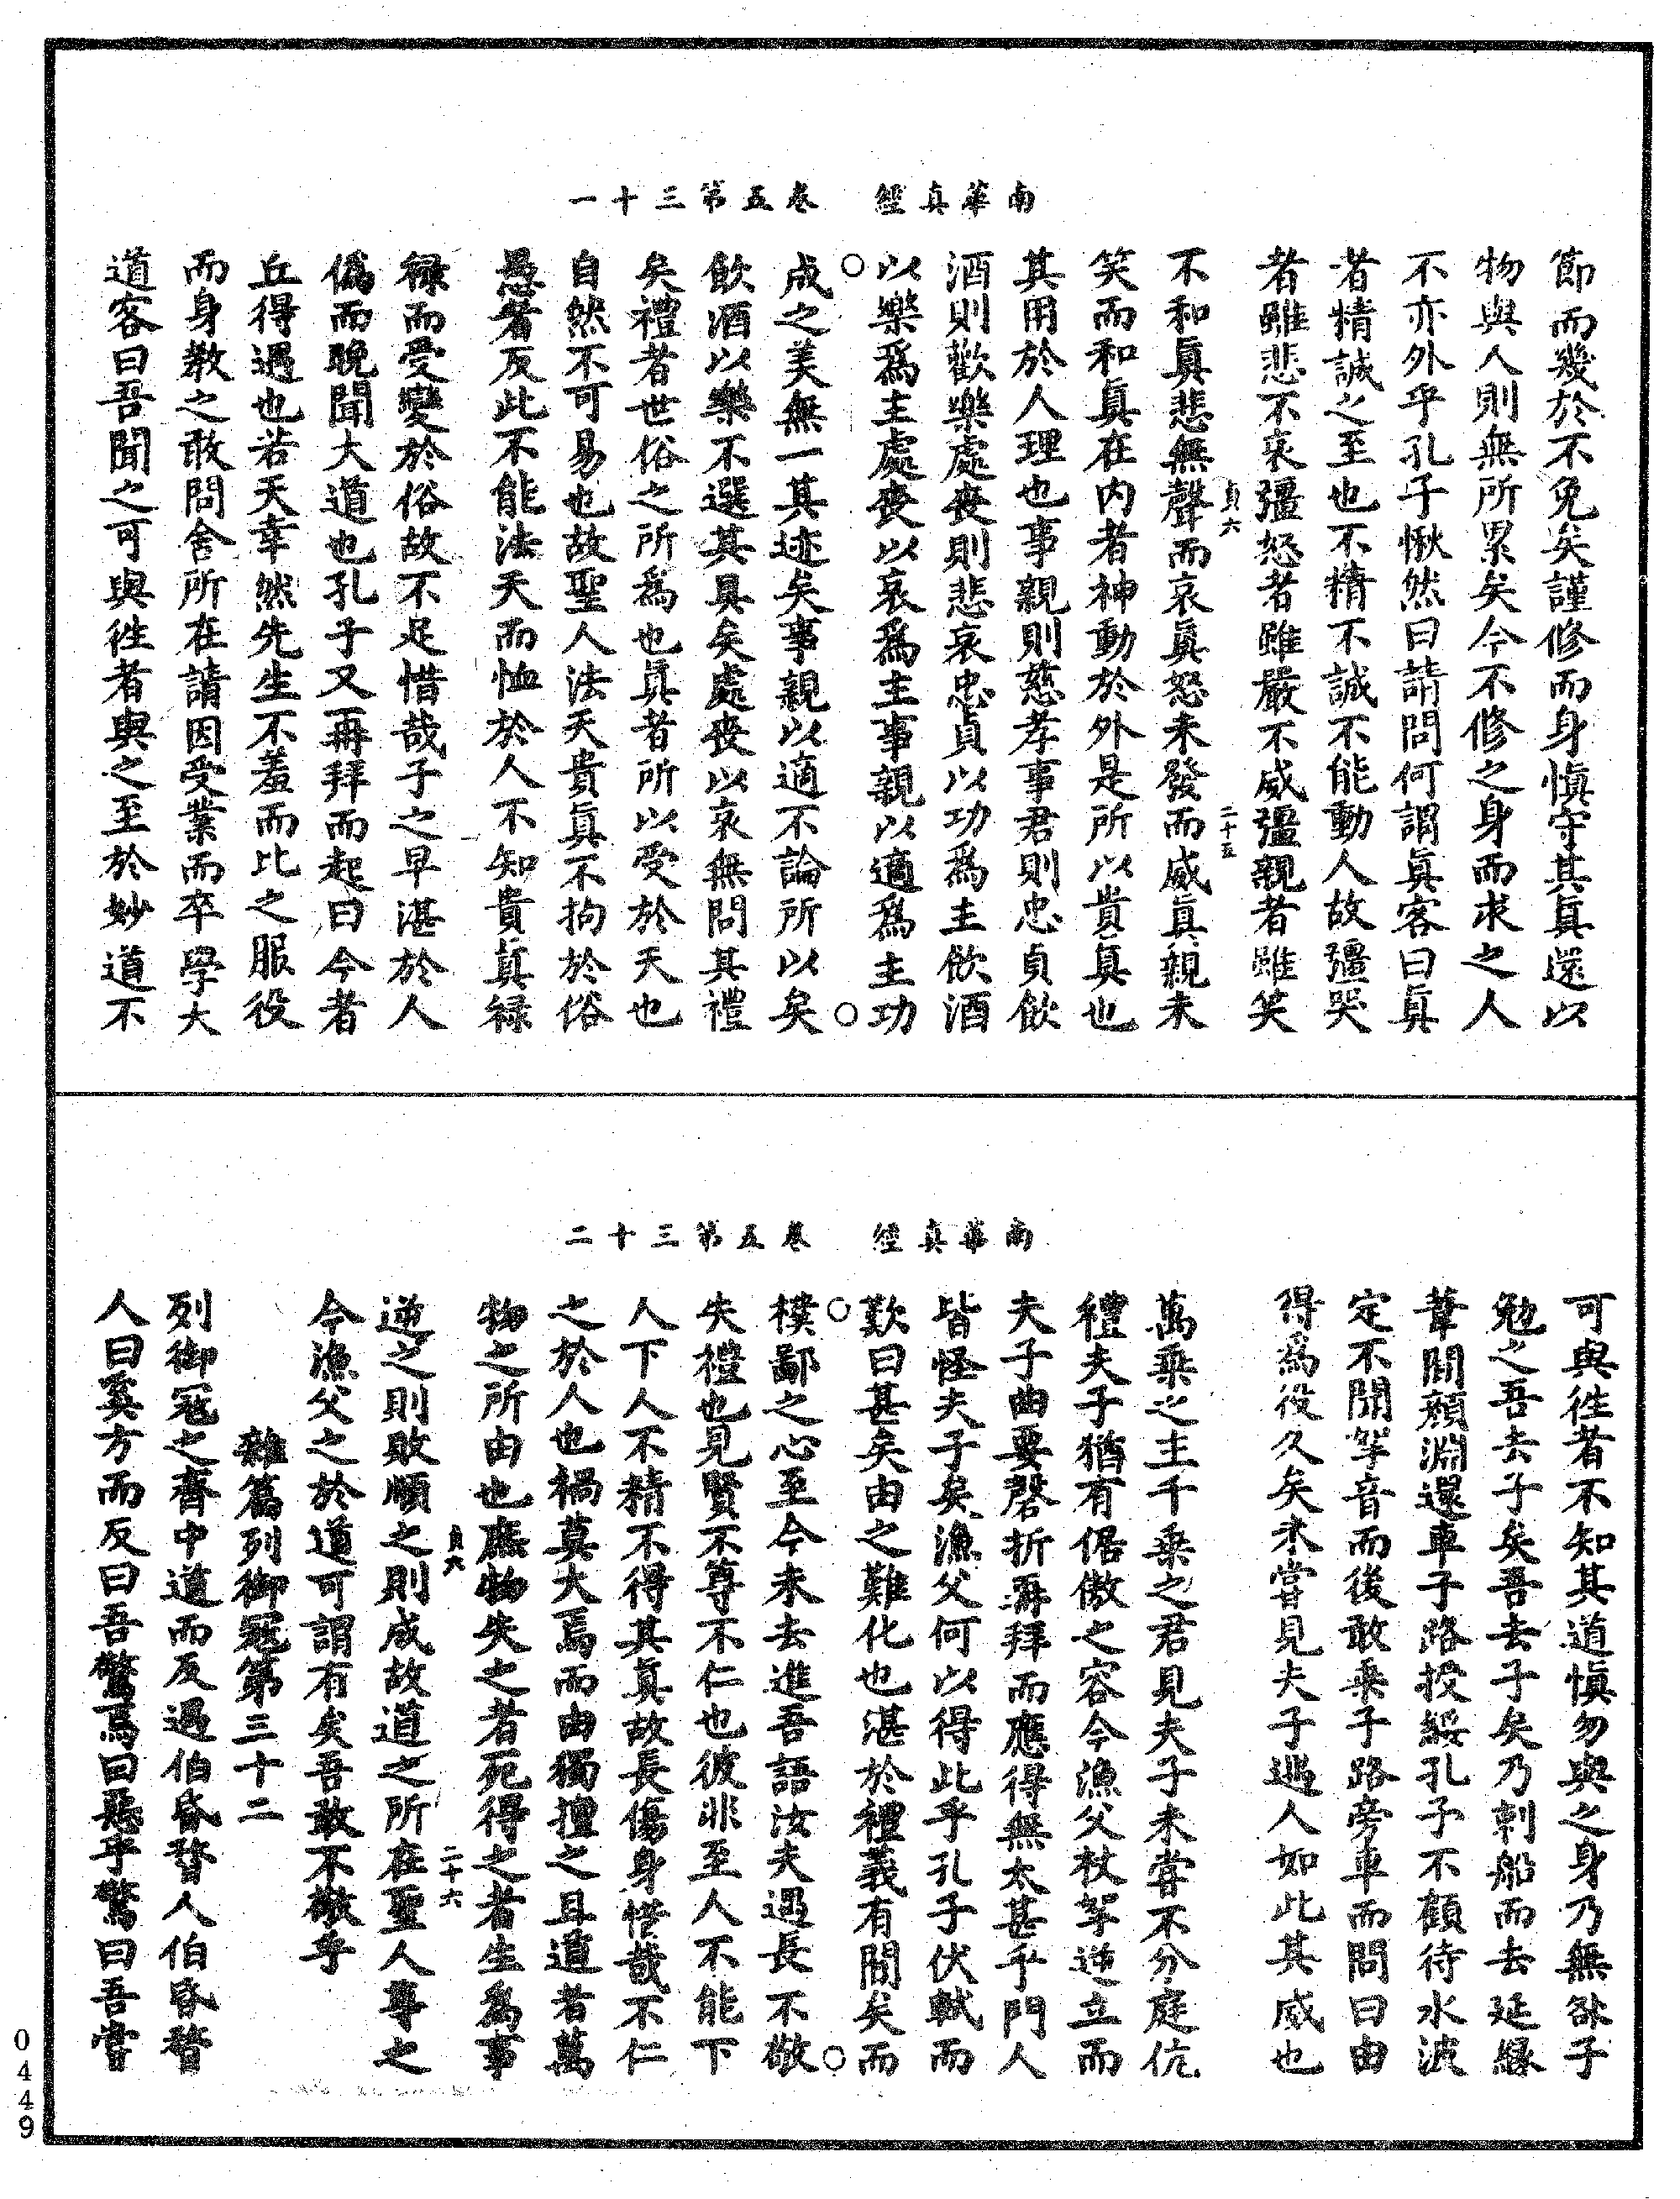 南華真經　卷五第三十一
節而幾於不免矣謹修而身慎守其真還以
物與人則無所累矣今不修之身而求之人
不亦外乎孔子愀然曰請問何謂真客曰真
者精誠之至也不精不誠不能動人故彊哭
者雖悲不哀彊怒者雖嚴不威彊親者雖笑
貞六　二十五
不和真悲無聲而哀真怒未發而威真親未
笑而和真在内者神動於外是所以貴真也
其用於人理也事親則慈孝事君則忠貞飲
酒則歡樂處喪則悲哀忠貞以功為主飲酒
以樂為主處喪以哀為主事親以適為主功
成之美無一其迹矣事親以適不論所以矣
飲酒以樂不選其具矣處喪以哀無問其禮
矣禮者世俗之所為也真者所以受於天也
自然不可易也故聖人法天貴真不拘於俗
愚者反此不能法天而恤於人不知貴真禄
禄而受變於俗故不足惜哉子之早湛於人
偽而晚聞大道也孔子又再拜而起曰今者
丘得遇也若天幸然先生不羞而比之服役
而身教之敢問舍所在請因受業而卒學大
道客曰吾聞之可與徃者與之至於妙道不
南華真經　卷五第三十二
可與徃者不知其道慎勿與之身乃無咎子
勉之吾去子矣吾去子矣乃刺船而去延緣
葦間顏淵還車子路授綏孔子不顧待水波
定不聞挐音而後敢乘子路旁車而問曰由
得為役久矣未嘗見夫子遇人如此其威也
萬乘之主千乘之君見夫子未嘗不分庭伉
禮夫子猶有倨傲之容今漁父杖挐逆立而
夫子曲要磬折再拜而應得無太甚乎門人
皆怪夫子矣漁父何以得此乎孔子伏軾而
歎曰甚矣由之難化也湛於禮義有間矣而
樸鄙之心至今未去進吾語汝夫遇長不敬
失禮也見賢不尊不仁也彼非至人不能下
人下人不精不得其真故長傷身惜哉不仁
之於人也禍莫大焉而由獨擅之且道者萬
物之所由也庶物失之者死得之者生為事
貞六　二十六
逆之則敗順之則成故道之所在聖人尊之
今漁父之於道可謂有矣吾敢不敬乎
雜篇列御寇第三十二
列御寇之齊中道而反遇伯昏瞀人伯昏瞀
人曰奚方而反曰吾驚焉曰惡乎驚曰吾嘗
0449